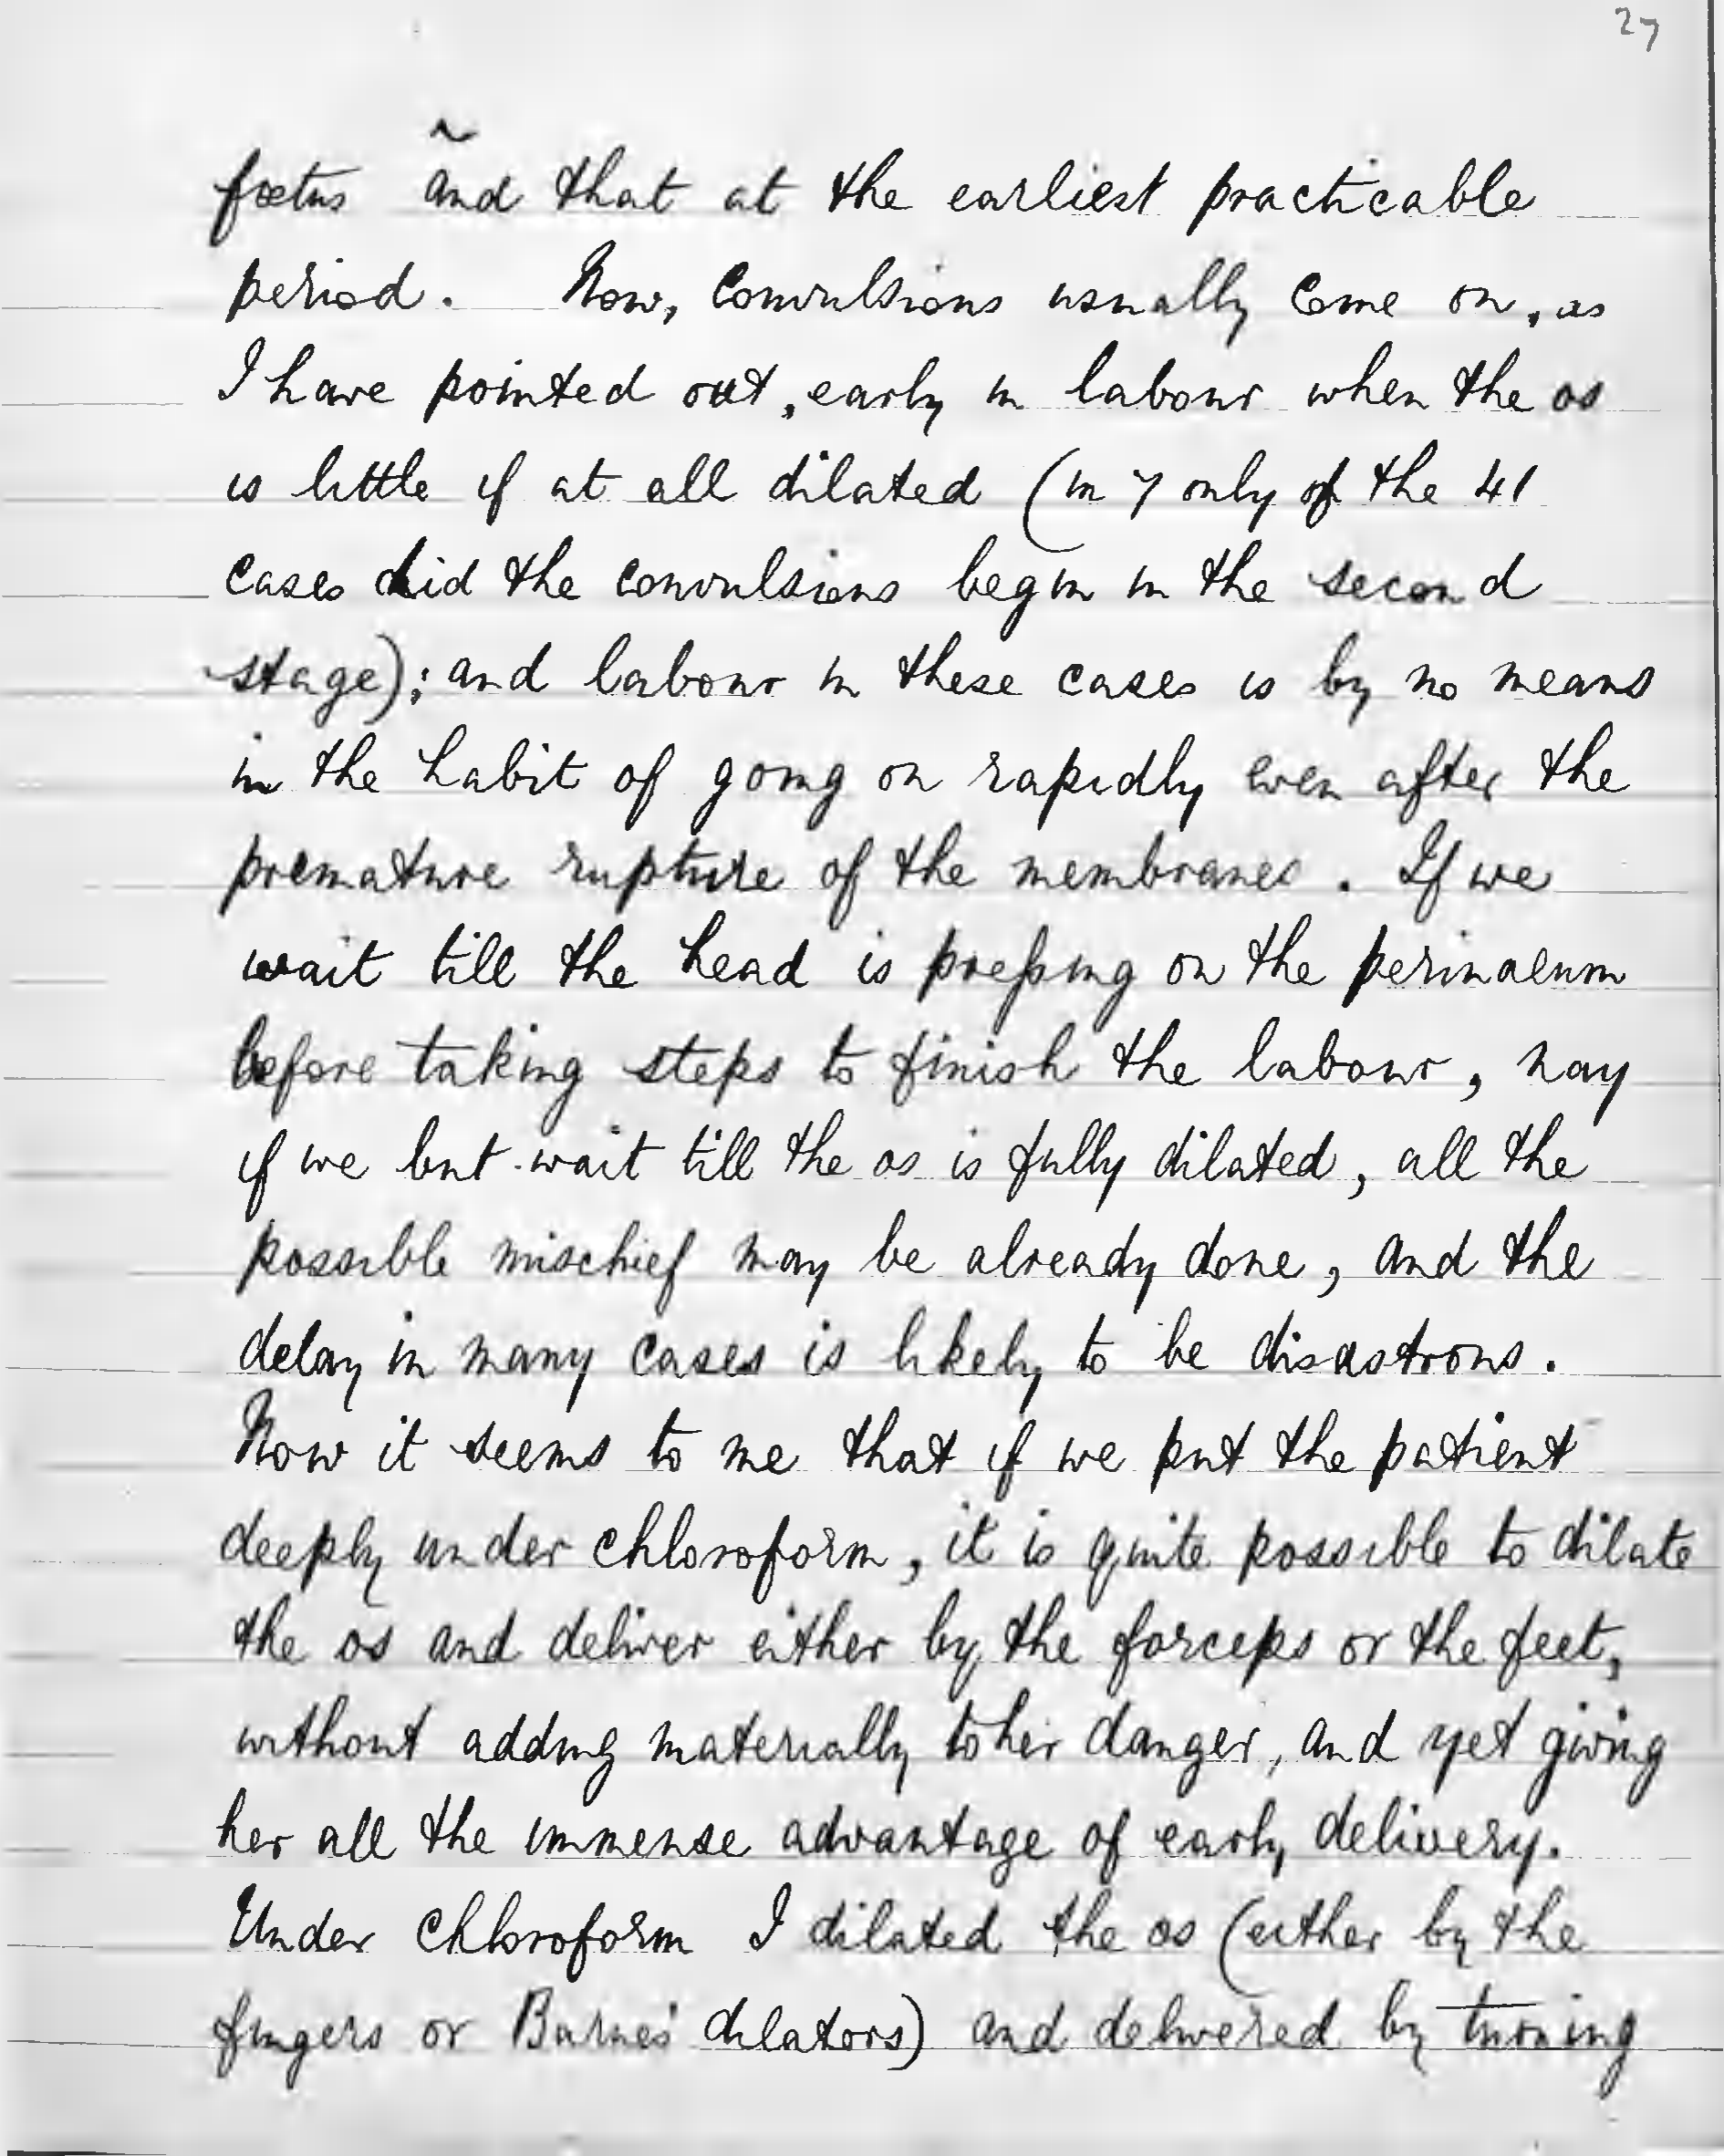 27
fœtus and that at the earliest practicable
period. Now, convulsions usually come on, as
I have pointed out, early in labour when the os
is little if at all dilated (in 7 only of the 41
cases did the convulsions begin in the second
stage); and labour in these cases is by no means
in the habit of going on rapidly even after the
premature rupture of the membranes. If we
wait till the head is preſsing on the perinaeum
before taking steps to finish the labour, nay
if we but wait till the os is fully dilated, all the
possible mischief may be already done, and the
delay in many cases is likely to be disastrous.
Now it seems to me that if we put the patient
deeply under chloroform, it is quite possible to dilate
the os and deliver either by the forceps or the feet,
without adding materially to her danger, and yet giving
her all the immense advantage of early delivery.
Under chloroform I dilated the os (either by the
fingers or Barnes' dilators) and delivered by turning